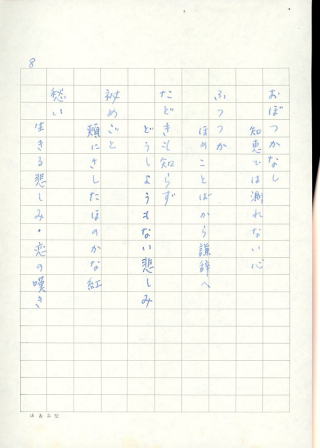 8
おぼつかなし
知恵では測れない心
ふつつか
ほめことばから謙辞へ
たどきも知らず
どうしようもない悲しみ
秘めごと
頬にさしたほのかな紅
愁い
生きる悲しみ・恋の嘆き